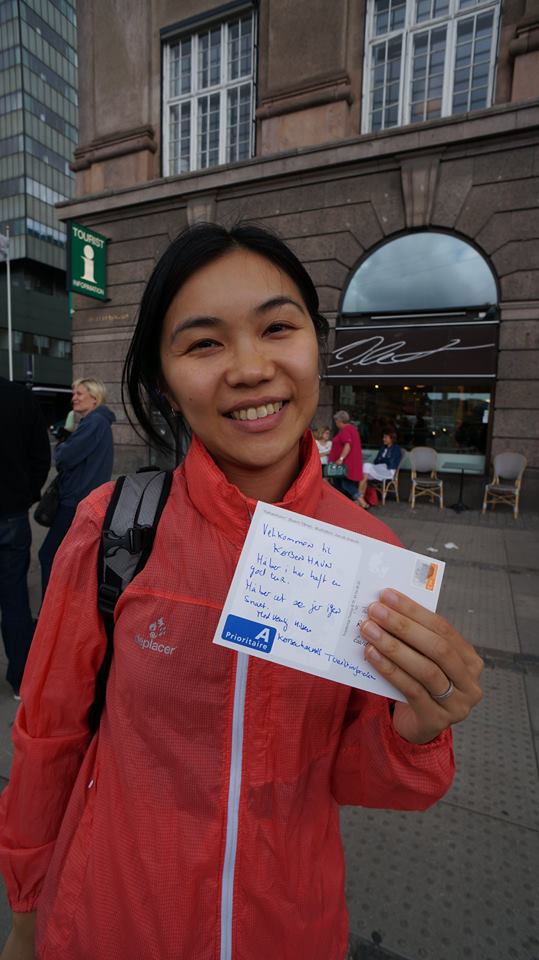 TOURIST
i
INFORMATION
Velkommen til
KØBENHAVN
Håber i har haft en
god tur.
Håber at se jer igen
snart.
Med venlig hilsen
Københavns Turistinformation
A
Prioritaire
deplacer